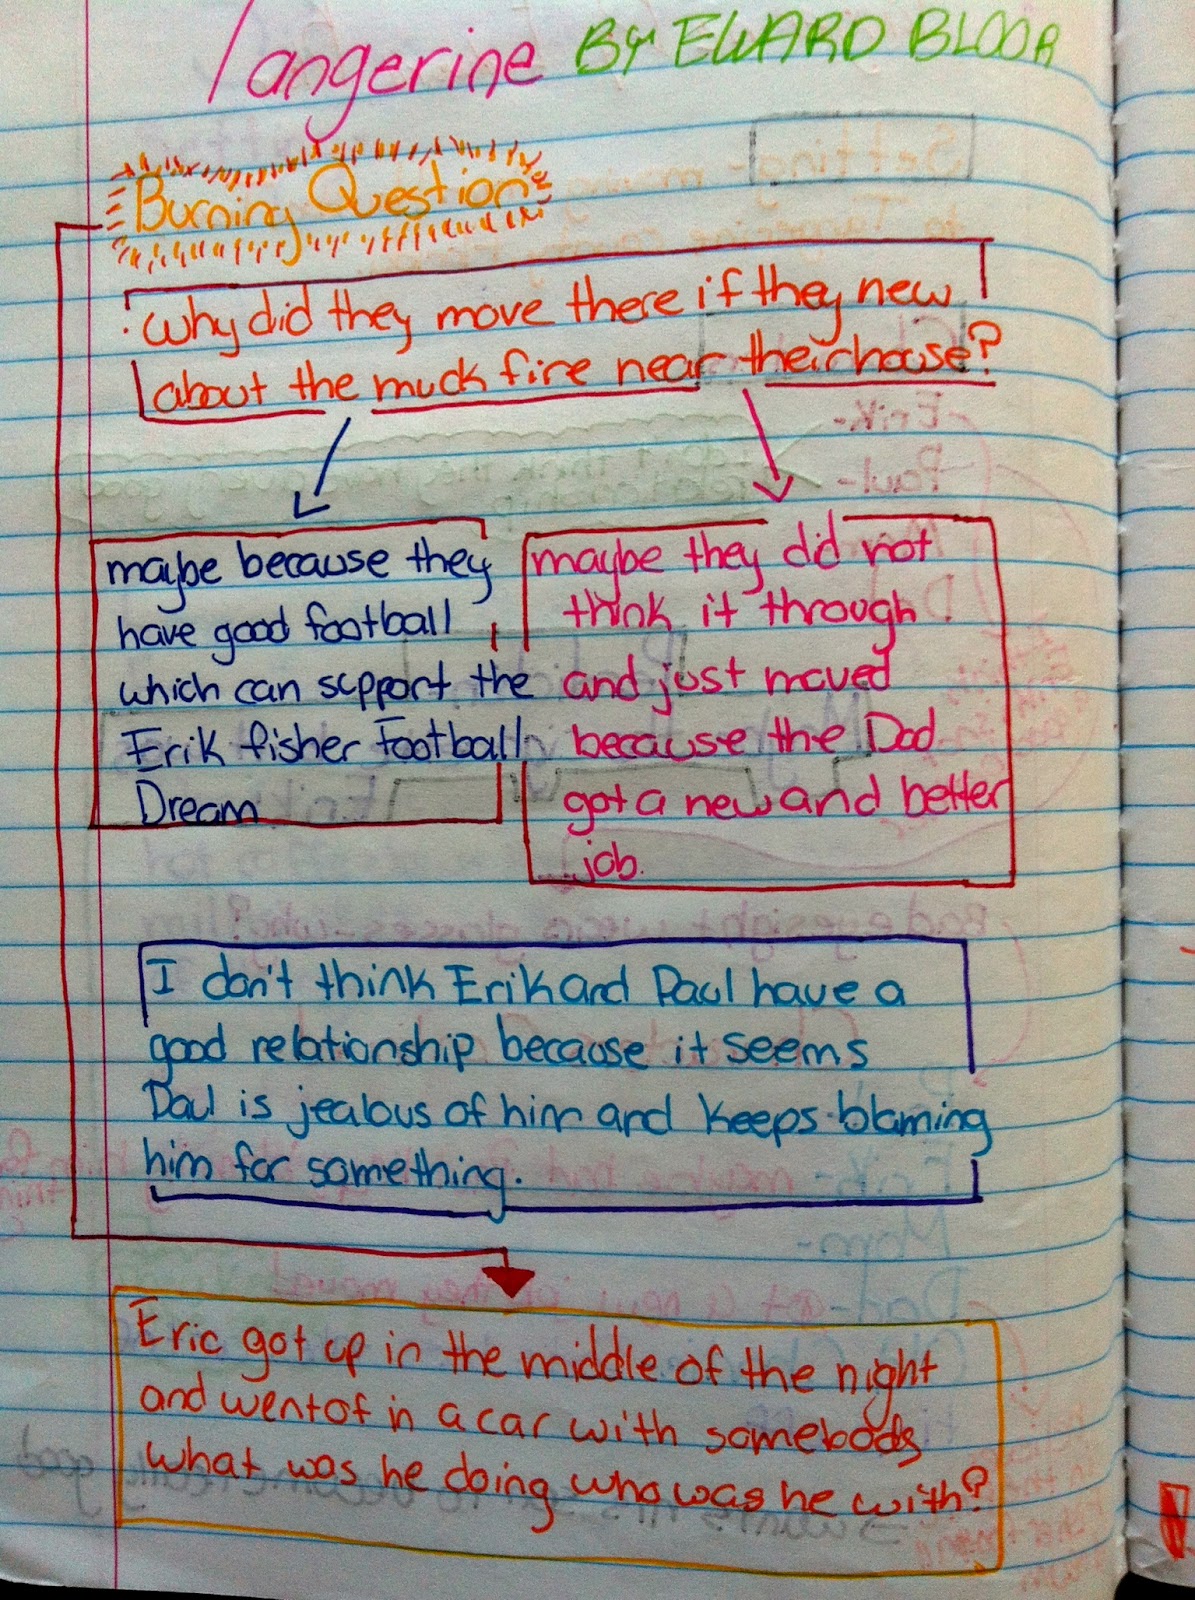 Tangerine BY EWARD BLOOR
Burning Question
Why did they move there if they new
about the muck fire near their house?
maybe because they
have good football
which can support the
Erik fisher Football
Dream
maybe they did not
think it through
and just moved
because the Dad
got a new and better
job.
I don't think Erik and Paul have a
good relationship because it seems
Paul is jealous of him and keeps blaming
him for something.
Eric got up in the middle of the night
and went of in a car with somebody
what was he doing who was he with?